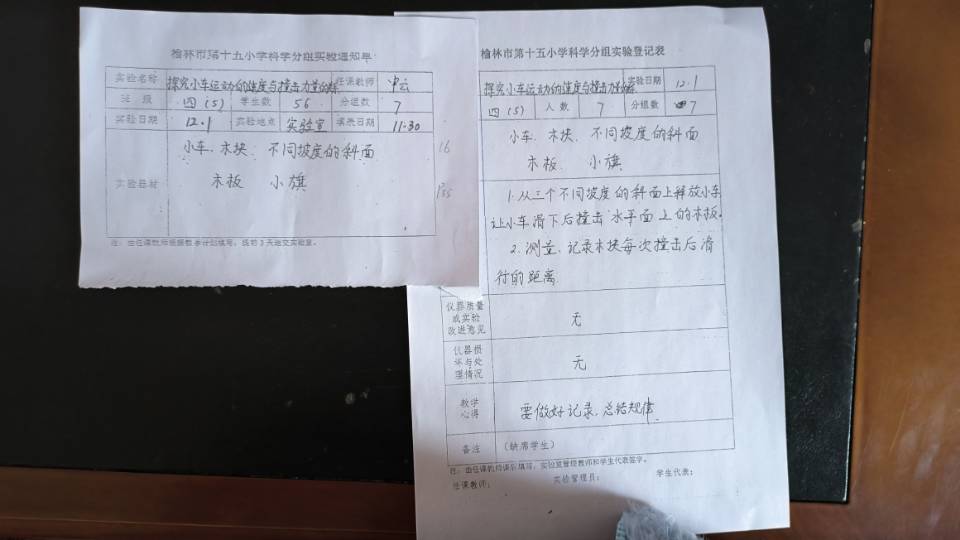 榆林市第十五小学科学分组实验通知单
实验名称 探究小车运动的速度与撞击力量的关系 任课教师
班 级 四(5) 学生数 56 分组数 7
实验日期 12.1 实验地点 实验室 填表日期 11.30
实验器材
小车、木块、不同坡度的斜面
木板 小旗
注:由任课教师根据教学计划填写,提前3天送交实验室。
16
榆林市第十五小学科学分组实验登记表
探究小车运动的速度与撞击力量的关系 实验日期 12.1
四(5) 人 数 7 分组数 7
小车、木块、不同坡度的斜面
木板、小旗
1.从三个不同坡度的斜面上释放小车
让小车滑下后撞击水平面上的木板。
2.测量、记录木块每次撞击后滑
行的距离
仪器质量
或实验
改进意见
无
仪器损
坏与处
理情况
无
教学
心得
要做好记录、总结规律
备注 (缺席学生)
注:由任课教师课后填写,实验室管理教师和学生代表签字。
任课教师: 实验管理员: 学生代表: